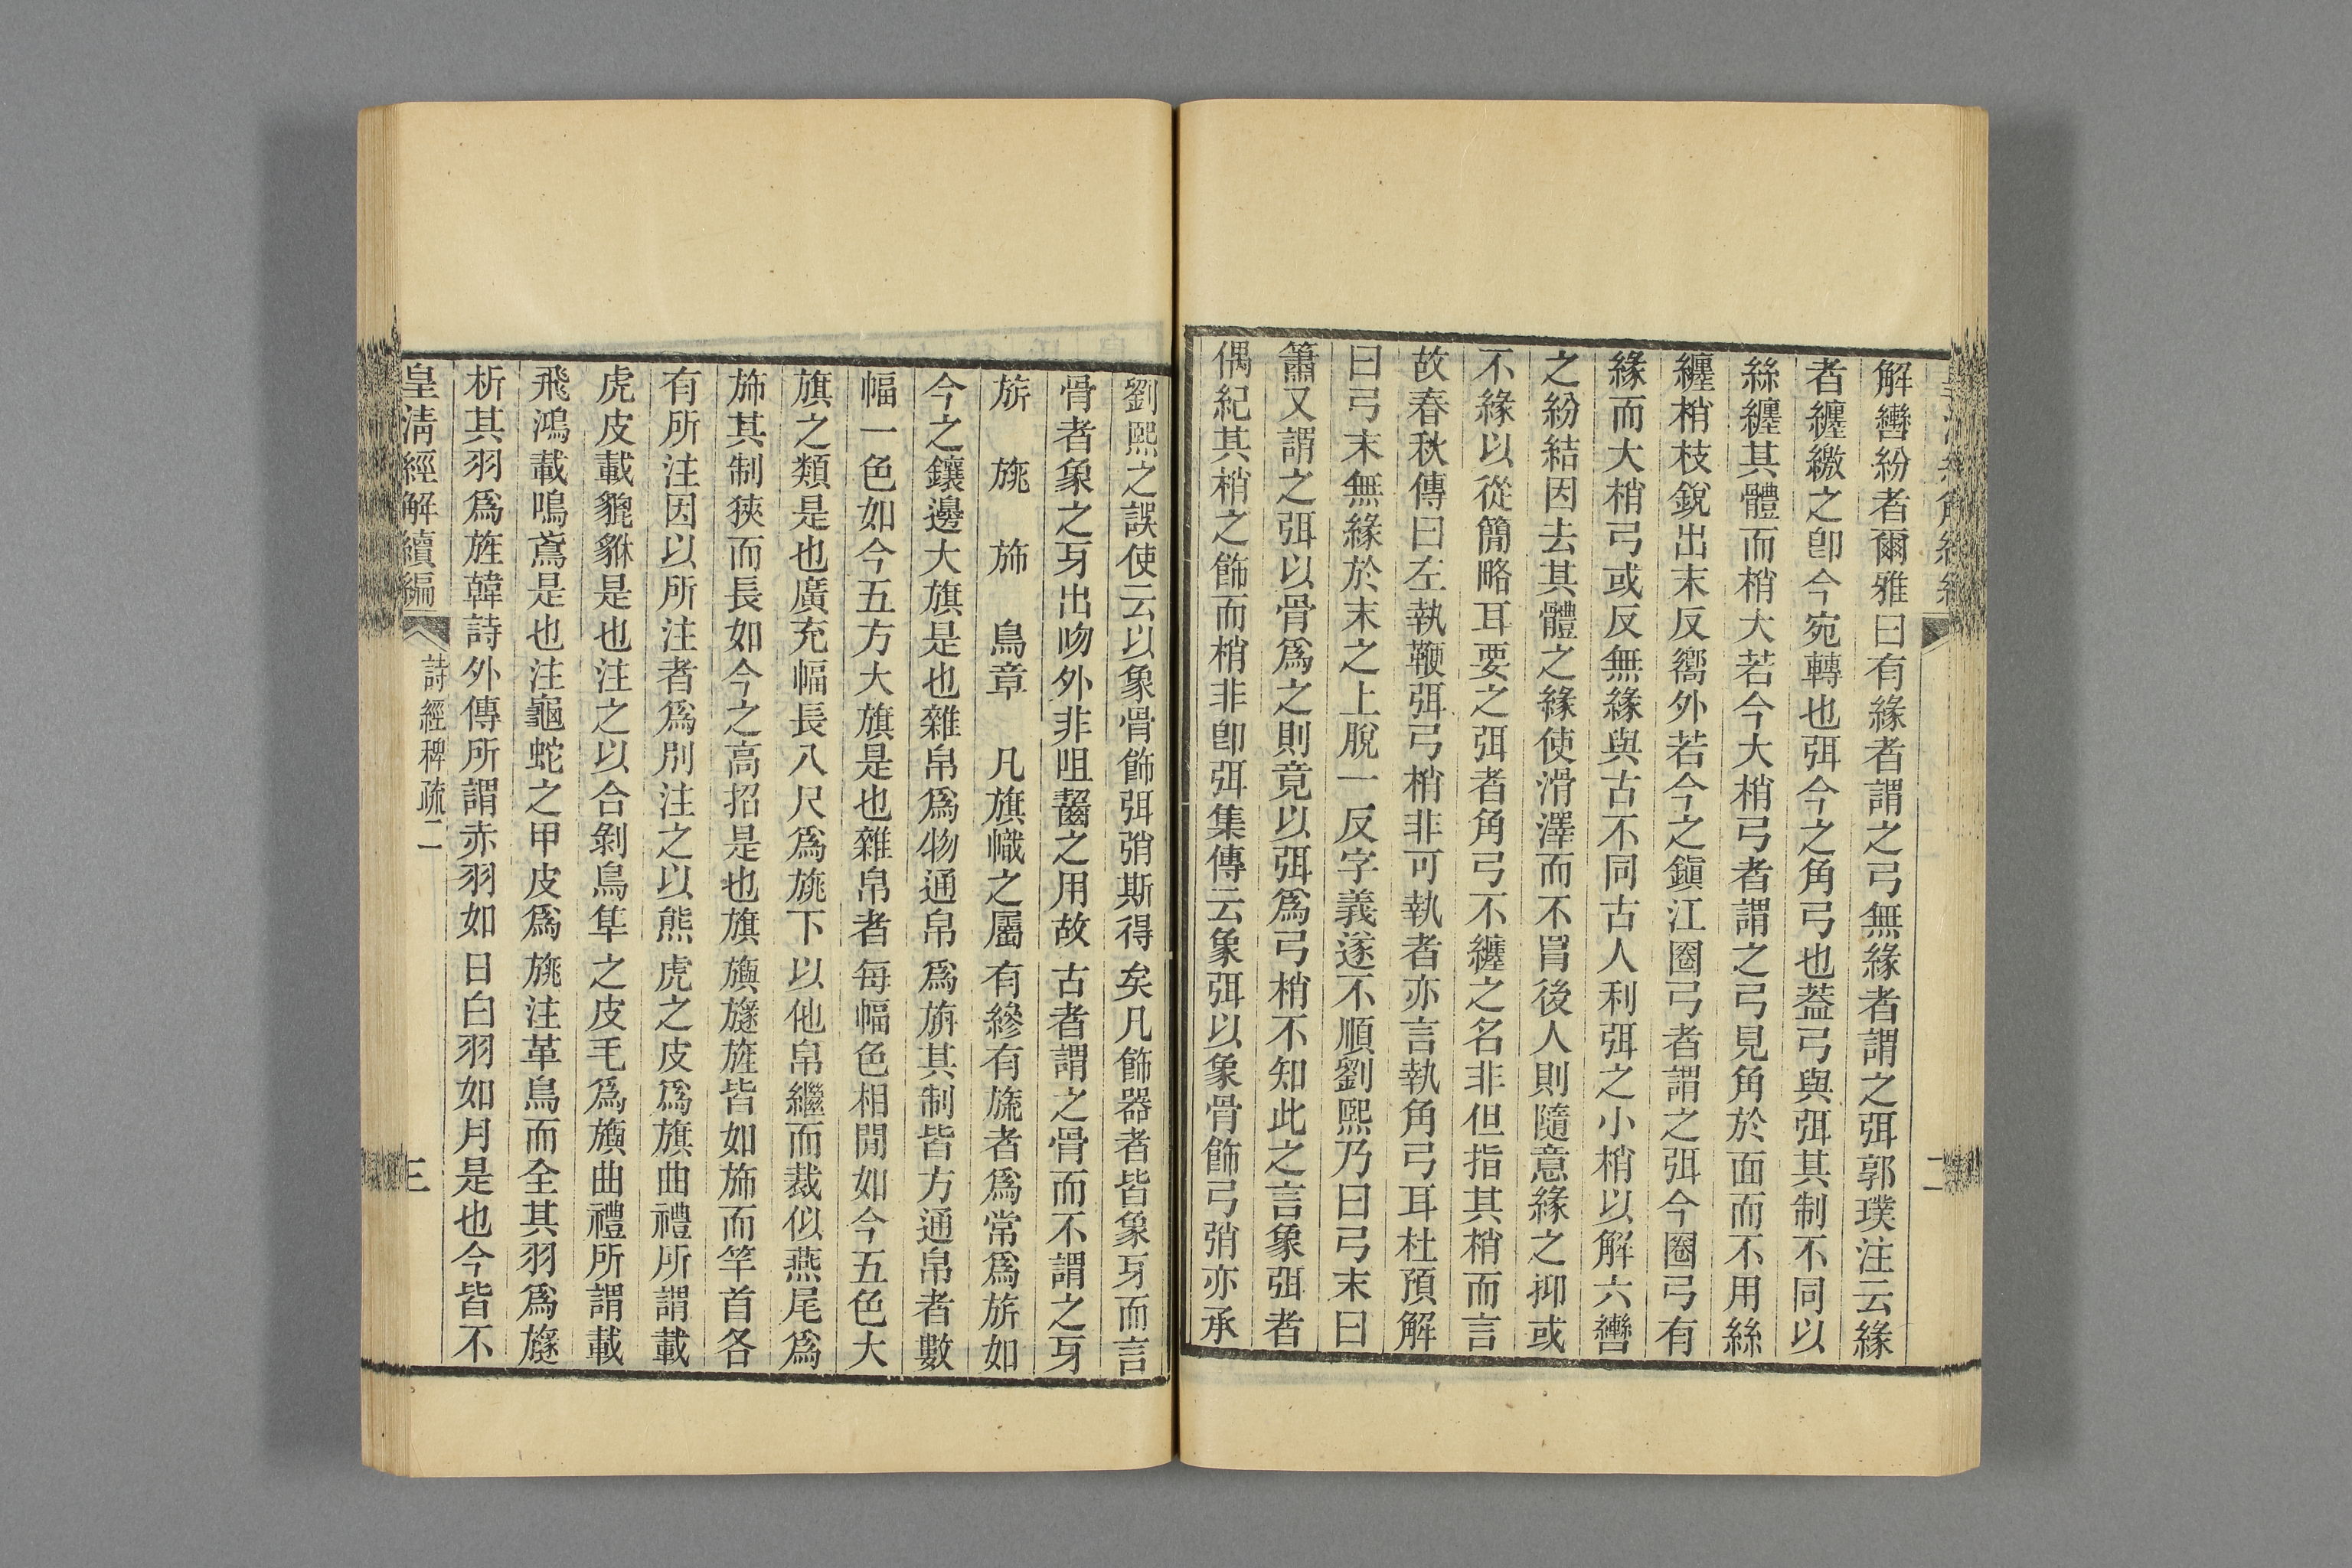 解轡紛者爾雅曰有緣者謂之弓無緣者謂之弭郭璞注云緣
者纏繳之卽今宛轉也弭今之角弓也葢弓與弭其制不同以
絲纏其體而梢大若今大梢弓者謂之弓見角於面而不用絲
纏梢枝銳出末反嚮外若今之鎭江圈弓者謂之弭今圈弓有
緣而大梢弓或反無緣與古不同古人利弭之小梢以解六轡
之紛結因去其體之緣使滑澤而不罥後人則隨意緣之抑或
不緣以從簡略耳要之弭者角弓不纏之名非但指其梢而言
故春秋傳曰左執鞭弭弓梢非可執者亦言執角弓耳杜預解
曰弓末無緣於末之上脫一反字義遂不順劉熙乃曰弓末曰
簫又謂之弭以骨爲之則竟以弭爲弓梢不知此之言象弭者
偶紀其梢之飾而梢非卽弭集傳云象弭以象骨飾弓弰亦承
二
劉熙之誤使云以象骨飾弭弰斯得矣凡飾器者皆象牙而言
骨者象之牙出吻外非咀齧之用故古者謂之骨而不謂之牙
旂　旐　旆　鳥章　凡旗幟之屬有縿有旒者爲常爲旂如
今之鑲邊大旗是也雜帛爲物通帛爲旃其制皆方通帛者數
幅一色如今五方大旗是也雜帛者每幅色相閒如今五色大
旗之類是也廣充幅長八尺爲旐下以他帛繼而裁似燕尾爲
旆其制狹而長如今之高招是也旗旟旞旌皆如旆而竿首各
有所注因以所注者爲別注之以熊虎之皮爲旗曲禮所謂載
虎皮載貔貅是也注之以合剝鳥隼之皮毛爲旟曲禮所謂載
飛鴻載鳴鳶是也注龜蛇之甲皮爲旐注革鳥而全其羽爲旞
析其羽爲旌韓詩外傳所謂赤羽如日白羽如月是也今皆不
皇淸經解續編
詩經稗疏二
三